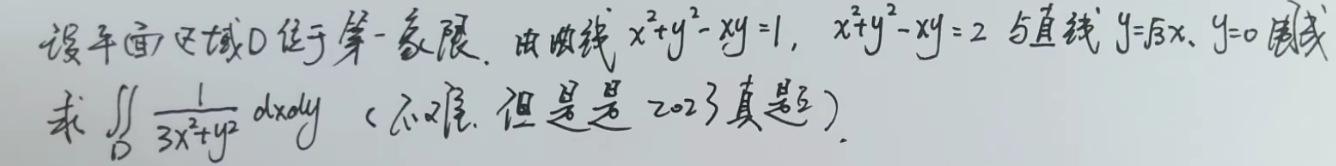 设平面区域D位于第一象限、由曲线 x²+y²-xy=1, x²+y²-xy=2 与直线 y=√3x、y=0 围成
求 ∬_D 1/(3x²+y²) dxdy (不难、但是是2023真题).